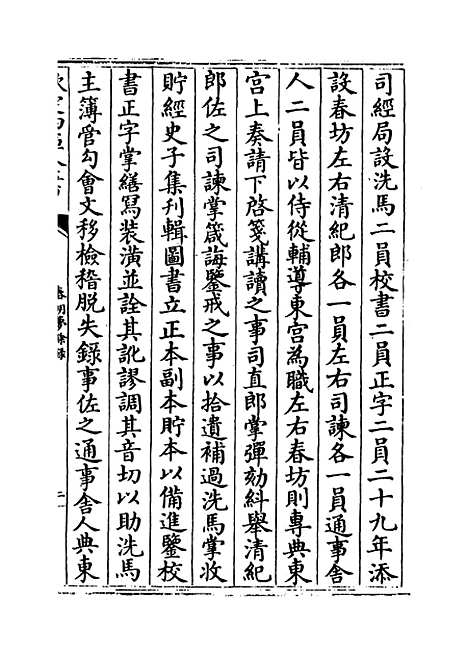 司經局設洗馬二員校書二員正字二員二十九年添
設春坊左右清紀郎各一員左右司諫各一員通事舍
人二員皆以侍從輔導東宮為職左右春坊則專典東
宮上奏請下啓箋講讀之事司直郎掌彈劾糾舉清紀
郎佐之司諫掌箴誨鑒戒之事以拾遺補過洗馬掌收
貯經史子集刊輯圖書立正本副本貯本以備進鑒校
書正字掌繕寫装潢並詮其訛謬調其音切以助洗馬
主簿管勾會文移檢稽脱失錄事佐之通事舍人典東
春明夢餘錄